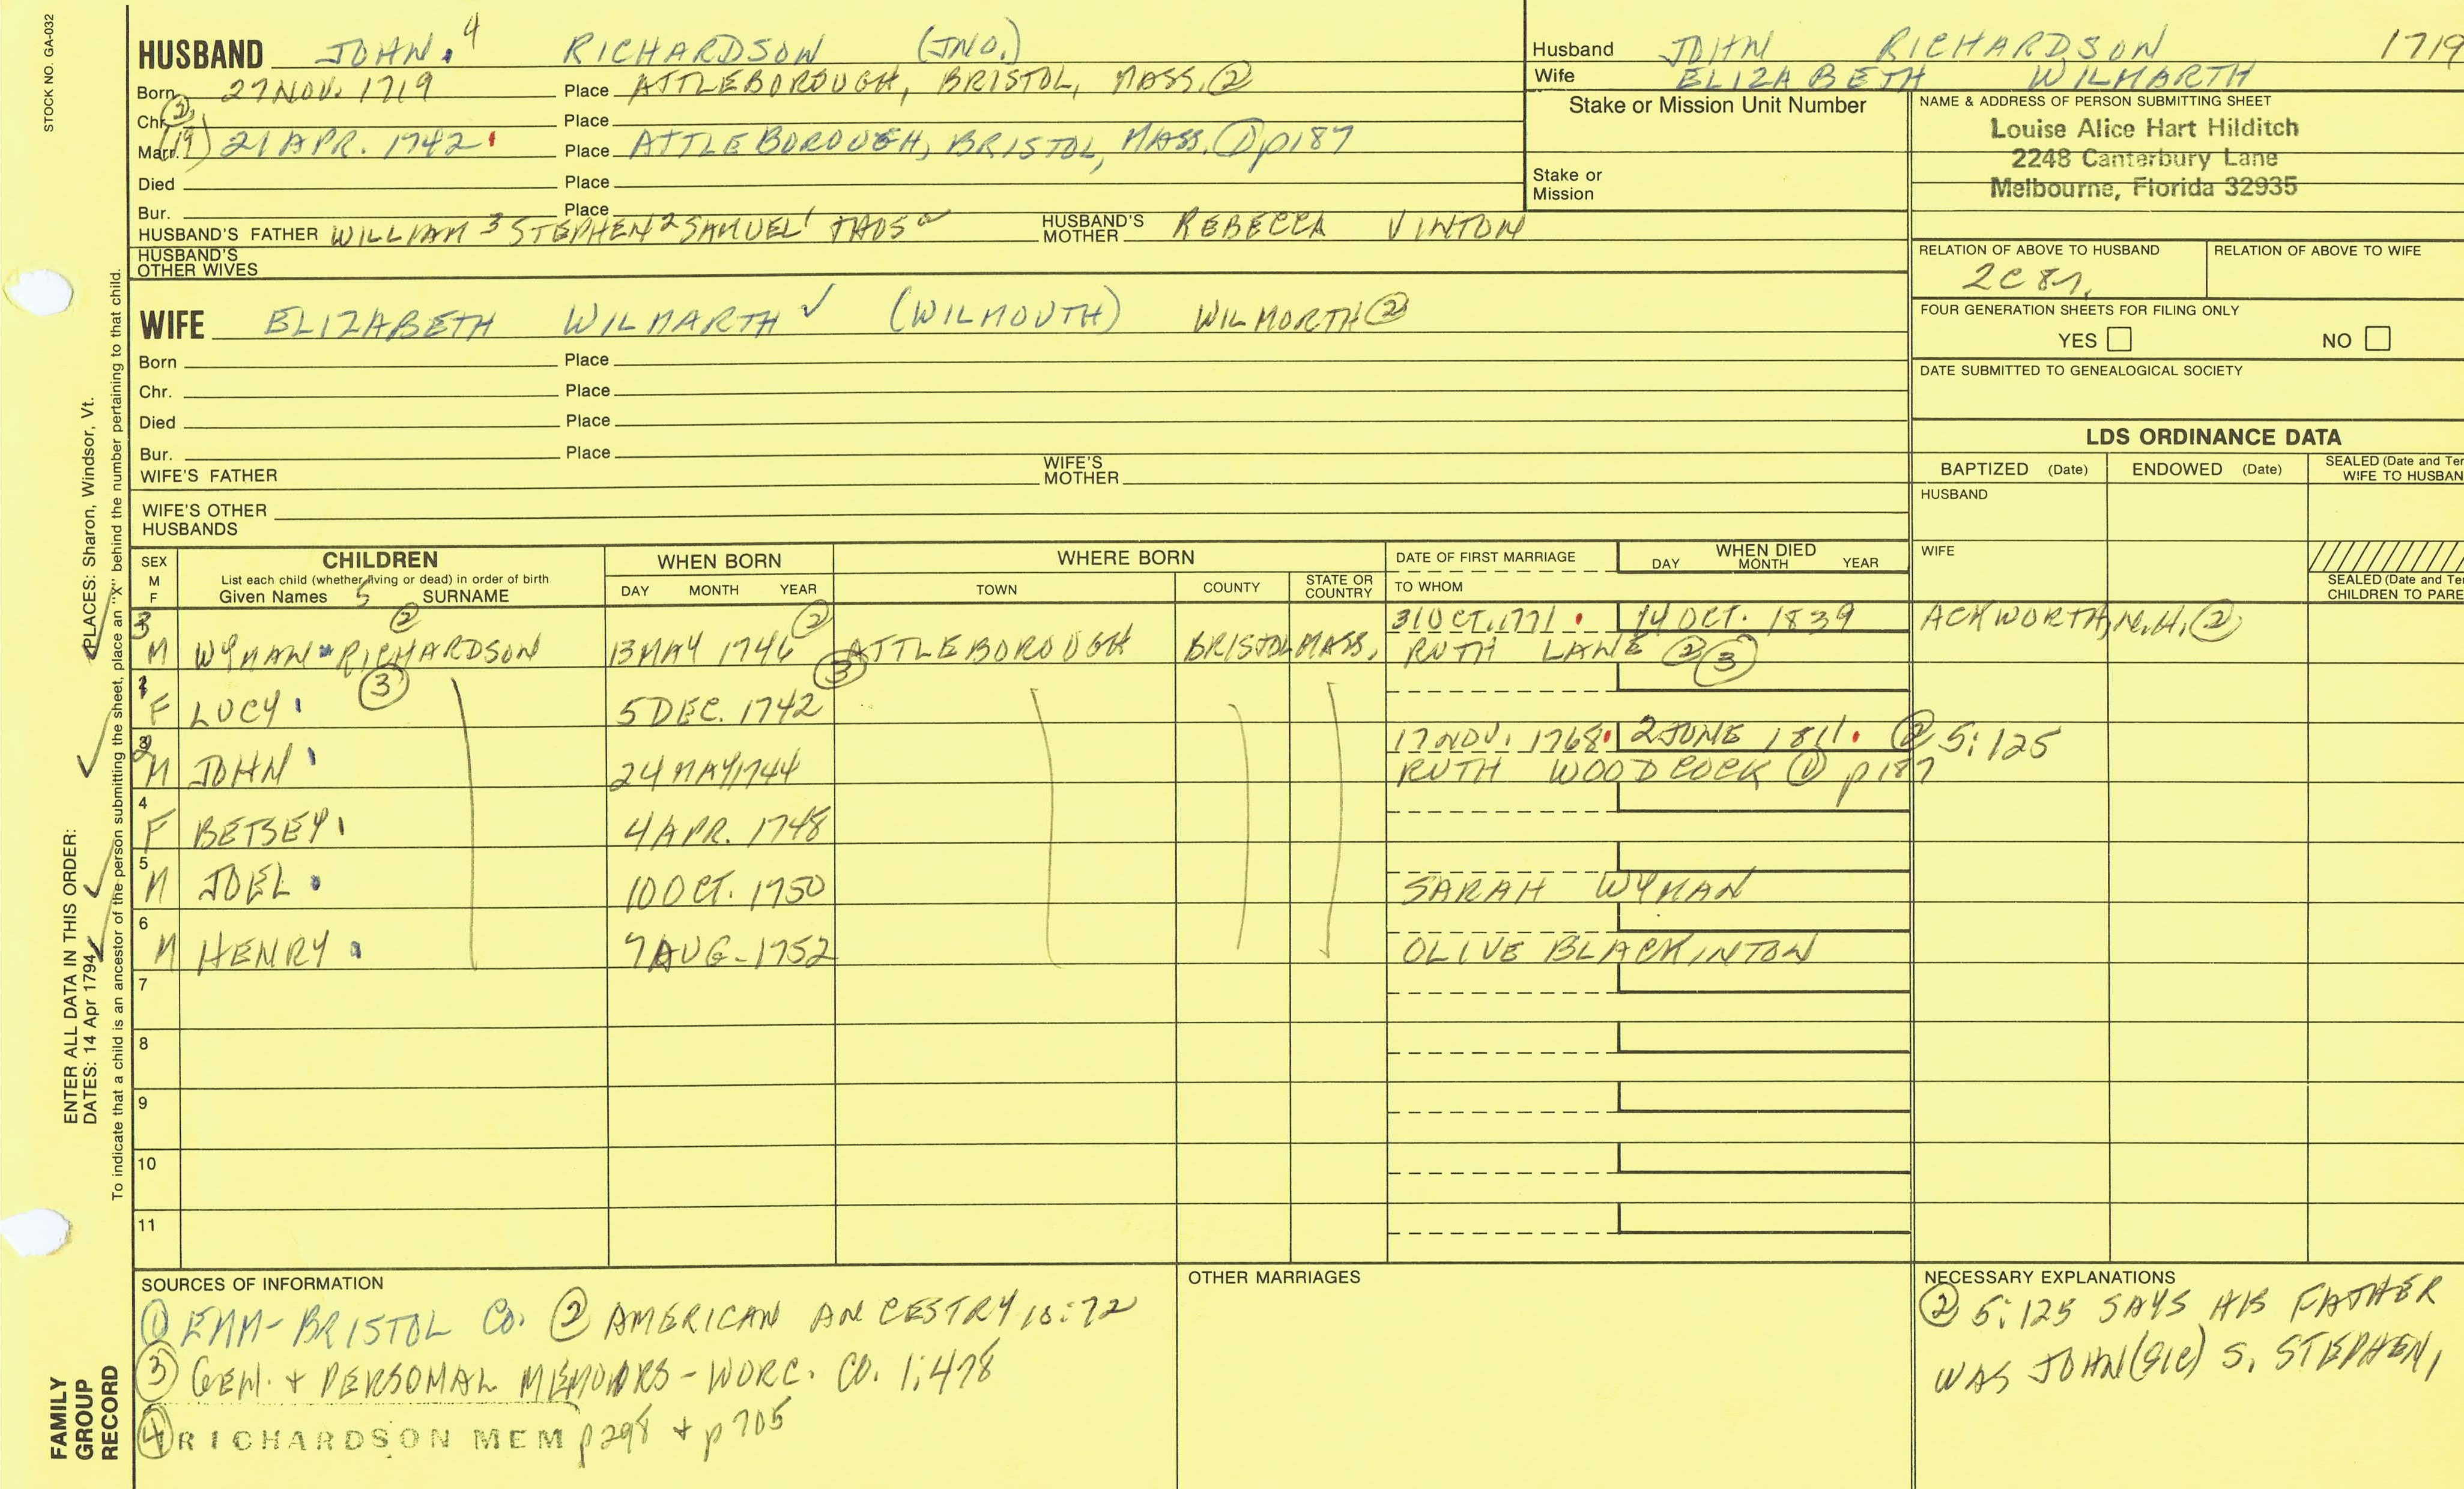 STOCK NO. GA-032
HUSBAND JOHN. 4 RICHARDSON (JNO.)
Born 27 NOV. 1719 Place ATTLEBOROUGH, BRISTOL, MASS. ②
Chr. ② Place
Marr. (19) 21 APR. 1742 Place ATTLEBOROUGH, BRISTOL, MASS. ① p187
Died Place
Bur. Place
HUSBAND'S FATHER WILLIAM 3 STEPHEN 2 SAMUEL 1 THOS HUSBAND'S MOTHER REBECCA VINTON
HUSBAND'S OTHER WIVES
WIFE ELIZABETH WILMARTH ✓ (WILMOUTH) WILMORTH ②
Born Place
Chr. Place
Died Place
Bur. Place
WIFE'S FATHER WIFE'S MOTHER
WIFE'S OTHER HUSBANDS
Husband JOHN RICHARDSON 1719
Wife ELIZABETH WILMARTH
Stake or Mission Unit Number
Stake or Mission
NAME & ADDRESS OF PERSON SUBMITTING SHEET
Louise Alice Hart Hilditch
2248 Canterbury Lane
Melbourne, Florida 32935
RELATION OF ABOVE TO HUSBAND RELATION OF ABOVE TO WIFE
2C 8r.
FOUR GENERATION SHEETS FOR FILING ONLY
YES NO
DATE SUBMITTED TO GENEALOGICAL SOCIETY
LDS ORDINANCE DATA
BAPTIZED (Date) ENDOWED (Date) SEALED (Date and Te
WIFE TO HUSBAN
HUSBAND
WIFE
SEALED (Date and Te
CHILDREN TO PARE
SEX M F CHILDREN WHEN BORN WHERE BORN DATE OF FIRST MARRIAGE WHEN DIED
List each child (whether living or dead) in order of birth DAY MONTH YEAR
Given Names 5 SURNAME DAY MONTH YEAR TOWN COUNTY STATE OR COUNTRY TO WHOM
3 ② ② 31 OCT. 1771 14 OCT. 1839 ACKWORTH, N.H. ②
M WYMAN RICHARDSON 13 MAY 1746 ③ ATTLEBOROUGH BRISTOL MASS. RUTH LANE ② ③
1 ③
F LUCY 5 DEC. 1742
2 17 NOV. 1768 2 JUNE 1811. ② 5:125
M JOHN 24 MAY 1744 RUTH WOODCOCK ① p187
4
F BETSEY 4 APR. 1748
5
M JOEL 10 OCT. 1750 SARAH WYMAN
6
M HENRY 7 AUG. 1752 OLIVE BLACKINTON
7
8
9
10
11
SOURCES OF INFORMATION
① EMM-BRISTOL CO. ② AMERICAN ANCESTRY 10:72
③ GEN. + PERSONAL MEMOIRS - WORC. CO. 1:478
④ RICHARDSON MEM p298 + p705
OTHER MARRIAGES
NECESSARY EXPLANATIONS
② 5:125 SAYS HIS FATHER
WAS JOHN (SIC) S. STEPHEN,
FAMILY GROUP RECORD
ENTER ALL DATA IN THIS ORDER:
DATES: 14 Apr 1794
PLACES: Sharon, Windsor, Vt.
To indicate that a child is an ancestor of the person submitting the sheet, place an "X" behind the number pertaining to that child.